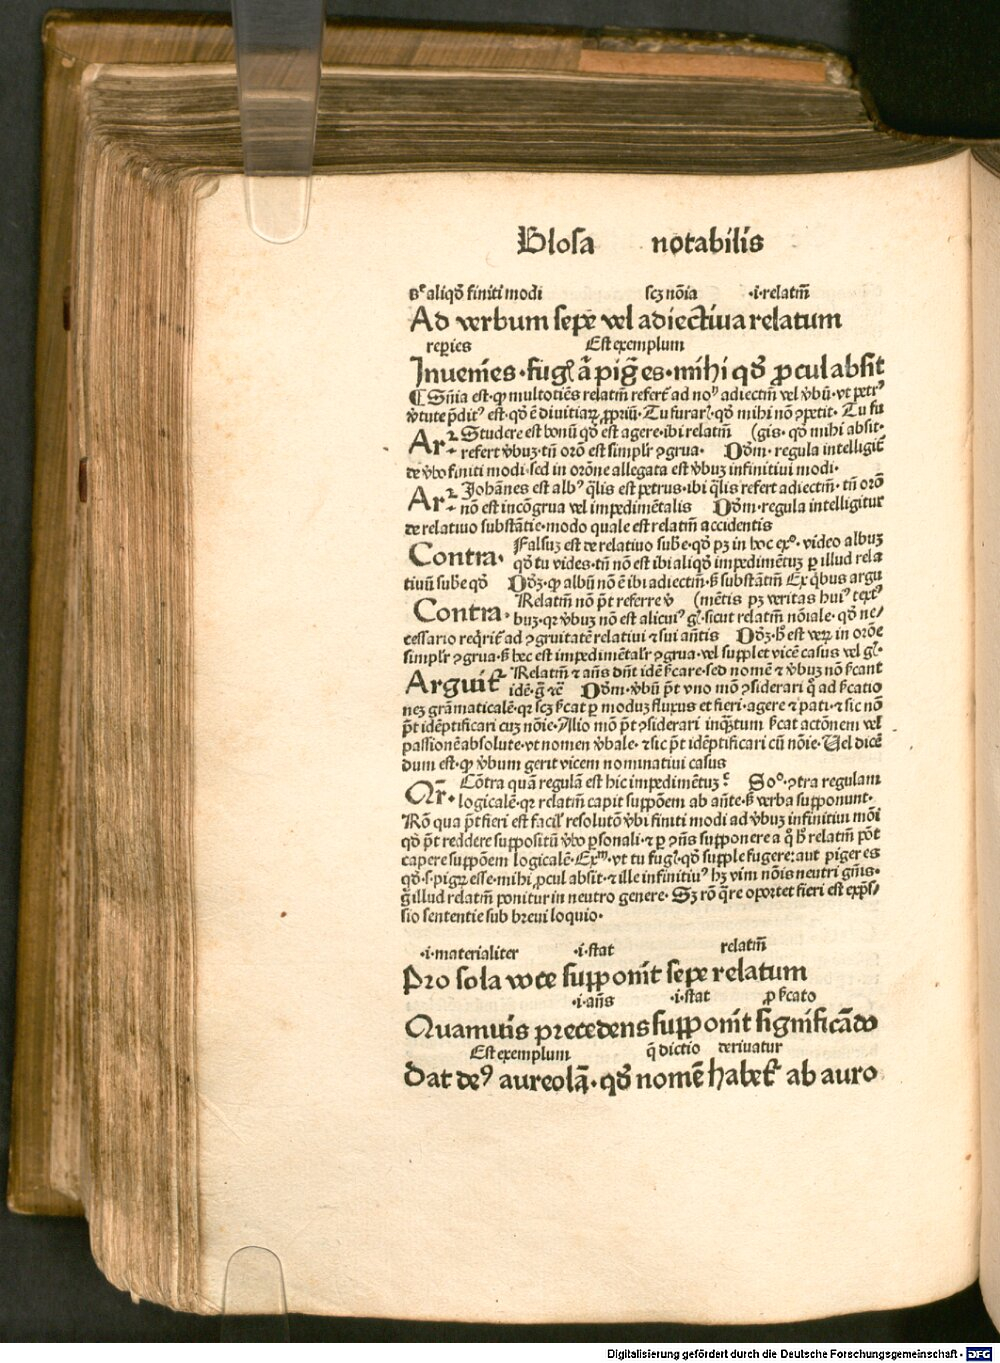 Glosa notabilis
sꝫ aliqḋ finiti modi scꝫ nōia .i.relatm̄
Ad verbum sepe vel adiectiua relatum
reperies Est exemplum
Inuenies.fugꝭ ā pigr̄ es.mihi qḋ ꝓcul absit
¶ Snīa est.ꝙ multotiēs relatm̄ refert̄ ad noꝰ adiectm̄ vel v̇bū.vt petrꝰ
v̇tute p̄ditꝰ est.qḋ ē diuitiaꝝ ꝓpriū.Tu furarꝭ.qḋ mihi nō ꝯpetit. Tu fu
Arꝛ. Studere est bonū qḋ est agere.ibi relatm̄ (gis. qḋ mihi absit.
refert v̇buꝫ.tn̄ orō est simplr̄ ꝯgrua. Dōm. regula intelligit̄
de v̇bo finiti modi.sed in orōne allegata est v̇buꝫ infinitiui modi.
Arꝛ. Johānes est albꝰ q̄lis est petrus.ibi q̄lis refert adiectm̄. tn̄ orō
nō est incōgrua vel impedimētalis Dōm.regula intelligitur
de relatiuo substātie.modo quale est relatm̄ accidentis
Contra. Falsuꝫ est de relatiuo sub̄e.qḋ pꝫ in hoc exº. video albuꝫ
qḋ tu vides.tn̄ nō est ibi aliqḋ impedimētuꝫ ꝑ illud rela
tiuū sub̄e qḋ Dōꝫ.ꝙ albū nō ē ibi adiectm̄.ꝫ substātm̄ Ex q̇bus argu
Contra. Relatm̄ nō pt̄ referre v̇ (mētis pꝫ veritas huiꝰ textꝰ
buꝫ.qꝛ v̇buꝫ nō est alicuiꝰ gꝭ.sicut relatm̄ nōiale. qḋ ne/
cessario req̇rit̄ ad ꝯgruitatē relatiui ⁊ sui an̄tis Dōꝫ.hꝰ est verꝫ in orōe
simplr̄ ꝯgrua.ꝫ hec est impedimētalr̄ ꝯgrua.vel supplet vicē casus vel gꝭ.
Arguit̄ Relatm̄ ⁊ an̄s dn̄t idē ſcare.sed nomē ⁊ v̇buꝫ nō ſcant
idē.ḡ ⁊c̄ Dōm.v̇bū pt̄ vno mō ꝯsiderari q̇ ad ſcatio
neꝫ grāmaticalē.qꝛ scꝫ ſcat ꝑ moduꝫ fluxus et fieri.agere ⁊ pati.⁊ sic nō
pt̄ idēptificari cuꝫ nōie.Alio mō pt̄ ꝯsiderari inqꝫtum ſcat actōnem vel
passionē absolute.vt nomen v̇bale.⁊ sic pt̄ idēptificari cū nōie.Uel dicē
dum est.ꝙ v̇bum gerit vicem nominatiui casus
Qr̄. Cōtra quā regulā est hic impedimētuꝫ? Soº.ꝯtra regulam
logicalē.qꝛ relatm̄ capit suppōem ab an̄te.ꝫ verba supponunt.
Rō qua pt̄ fieri est facilꝭ resolutō v̇bi finiti modi ad v̇buꝫ infinitiui mōi
qḋ pt̄ reddere suppositū v̇bo ꝑsonali.⁊ ꝑ ꝯn̄s supponere a q̇ hꝰ relatm̄ pōt
capere suppōem logicalē.Exm̄.vt tu fugꝭ.qḋ supple fugere:aut piger es
qḋ.s.pigrꝫ esse.mihi ꝓcul absit.⁊ ille infinitiuꝰ hꝫ vim nōis neutri gn̄is.
ḡ illud relatm̄ ponitur in neutro genere. Sꝫ rō q̄re oportet fieri est exp̄s/
sio sententie sub breui loquio.
.i.materialiter .i.stat relatm̄
Pro sola voce supponit sepe relatum
.i.an̄s .i.stat ꝓ ſcato
Quamuis precedens supponit significādo
Est exemplum q̄ dictio deriuatur
Dat deꝰ aureolā.qḋ nomē habet̄ ab auro
Digitalisierung gefördert durch die Deutsche Forschungsgemeinschaft - DFG